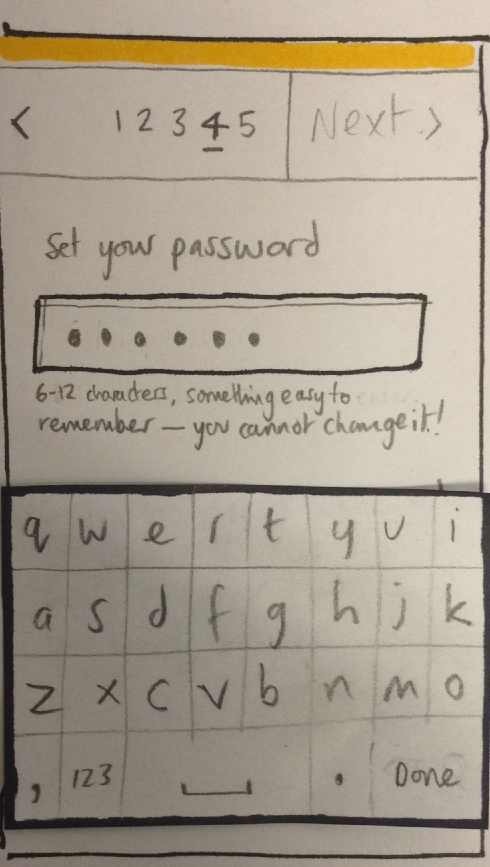 < 1 2 3 4 5 Next >
Set your password
● ● ● ● ● ●
6-12 characters, something easy to
remember — you cannot change it!
q w e r t y u i
a s d f g h j k
z x c v b n m o
, 123 . Done